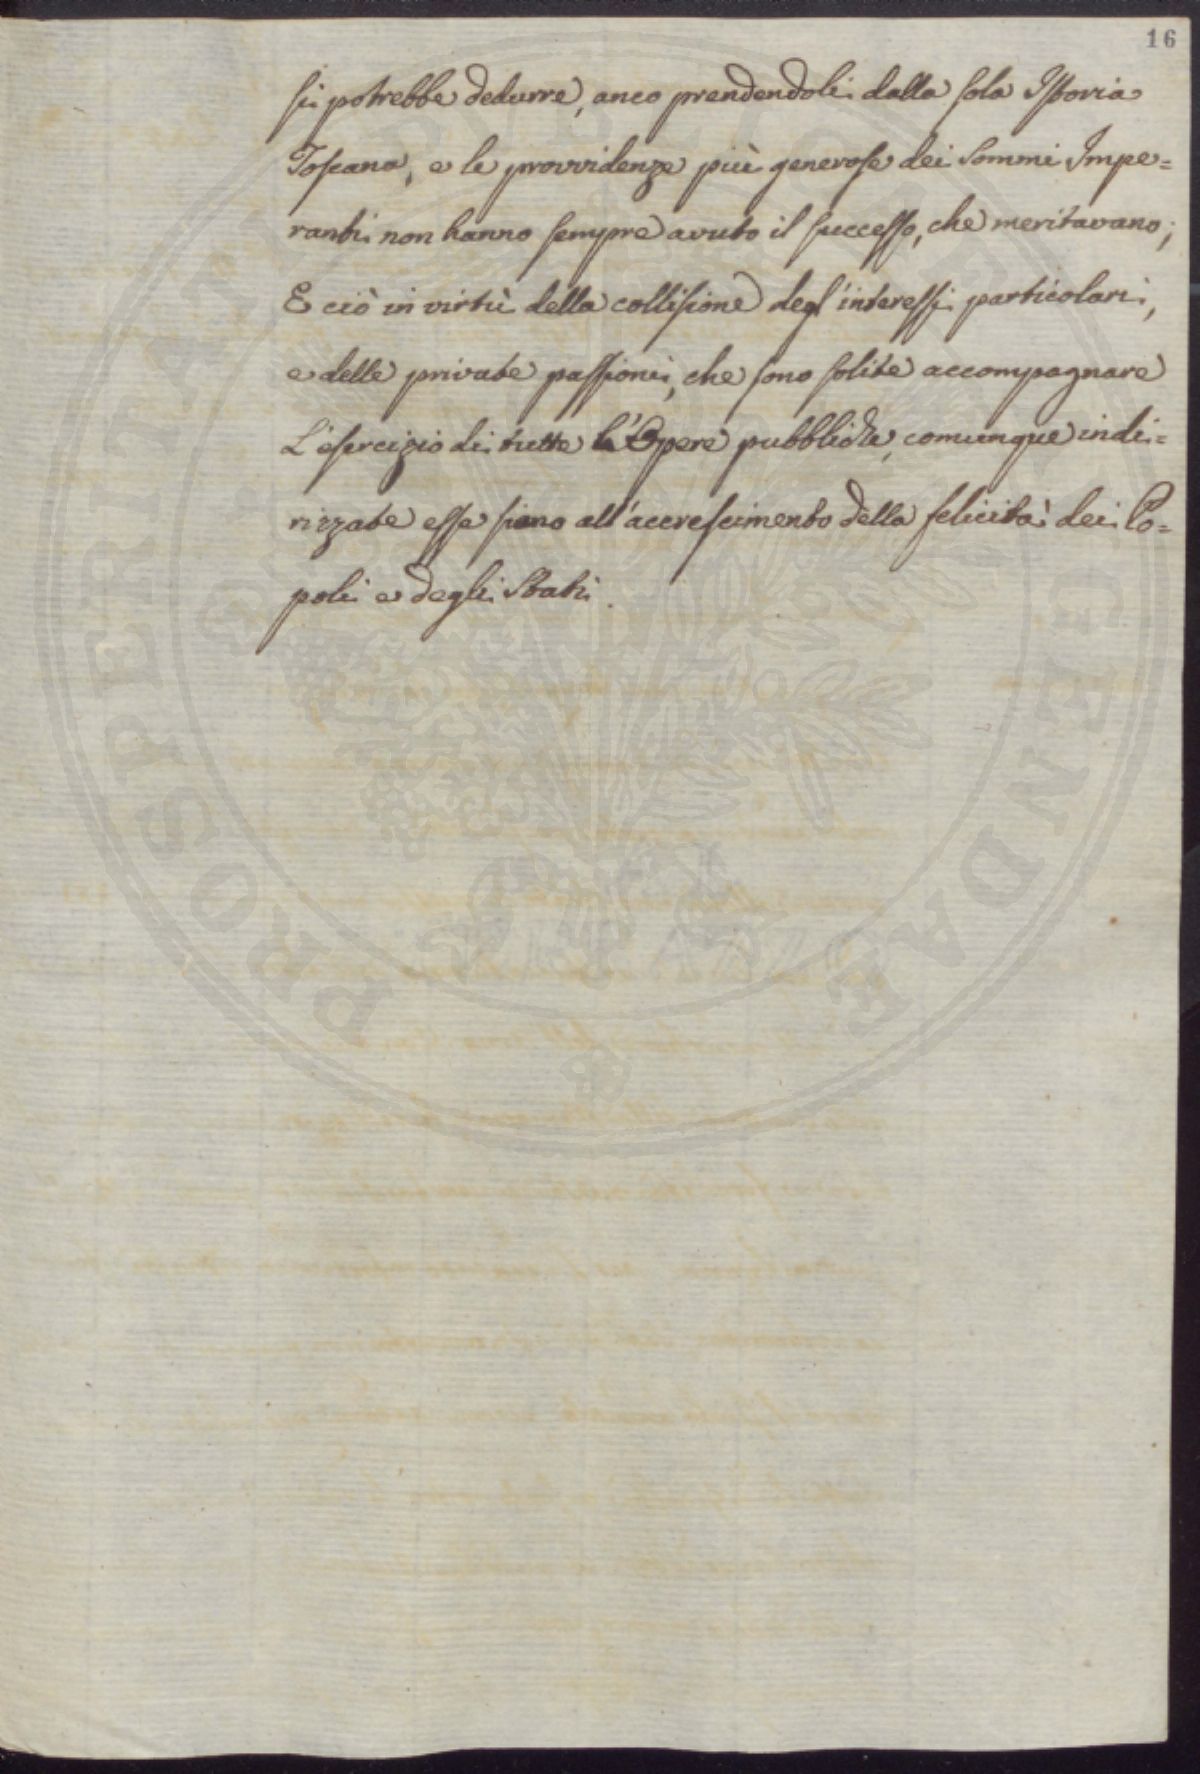 16
si potrebbe dedurre, anco prendendoli dalla sola Istoria
Toscana, e le provvidenze più generose dei Sommi Impe=
ranti non hanno sempre avuto il successo, che meritavano;
E ciò in virtù della collisione degl'interessi particolari,
e delle private passioni, che sono solite accompagnare
L'esercizio di tutte l'Opere pubbliche, comunque indi=
rizzate esse siano all'accrescimento della felicità dei Po=
poli e degli Stati.
PROSPERITATI PUBLICAE AUGENDAE